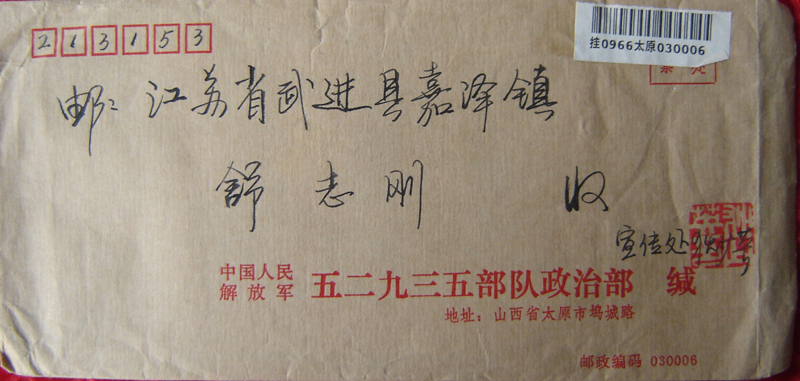 213153
挂0966太原030006
邮：江苏省武进县嘉泽镇
舒志刚 收
宣传处
中国人民解放军 五二九三五部队政治部 缄
地址：山西省太原市坞城路
邮政编码 030006